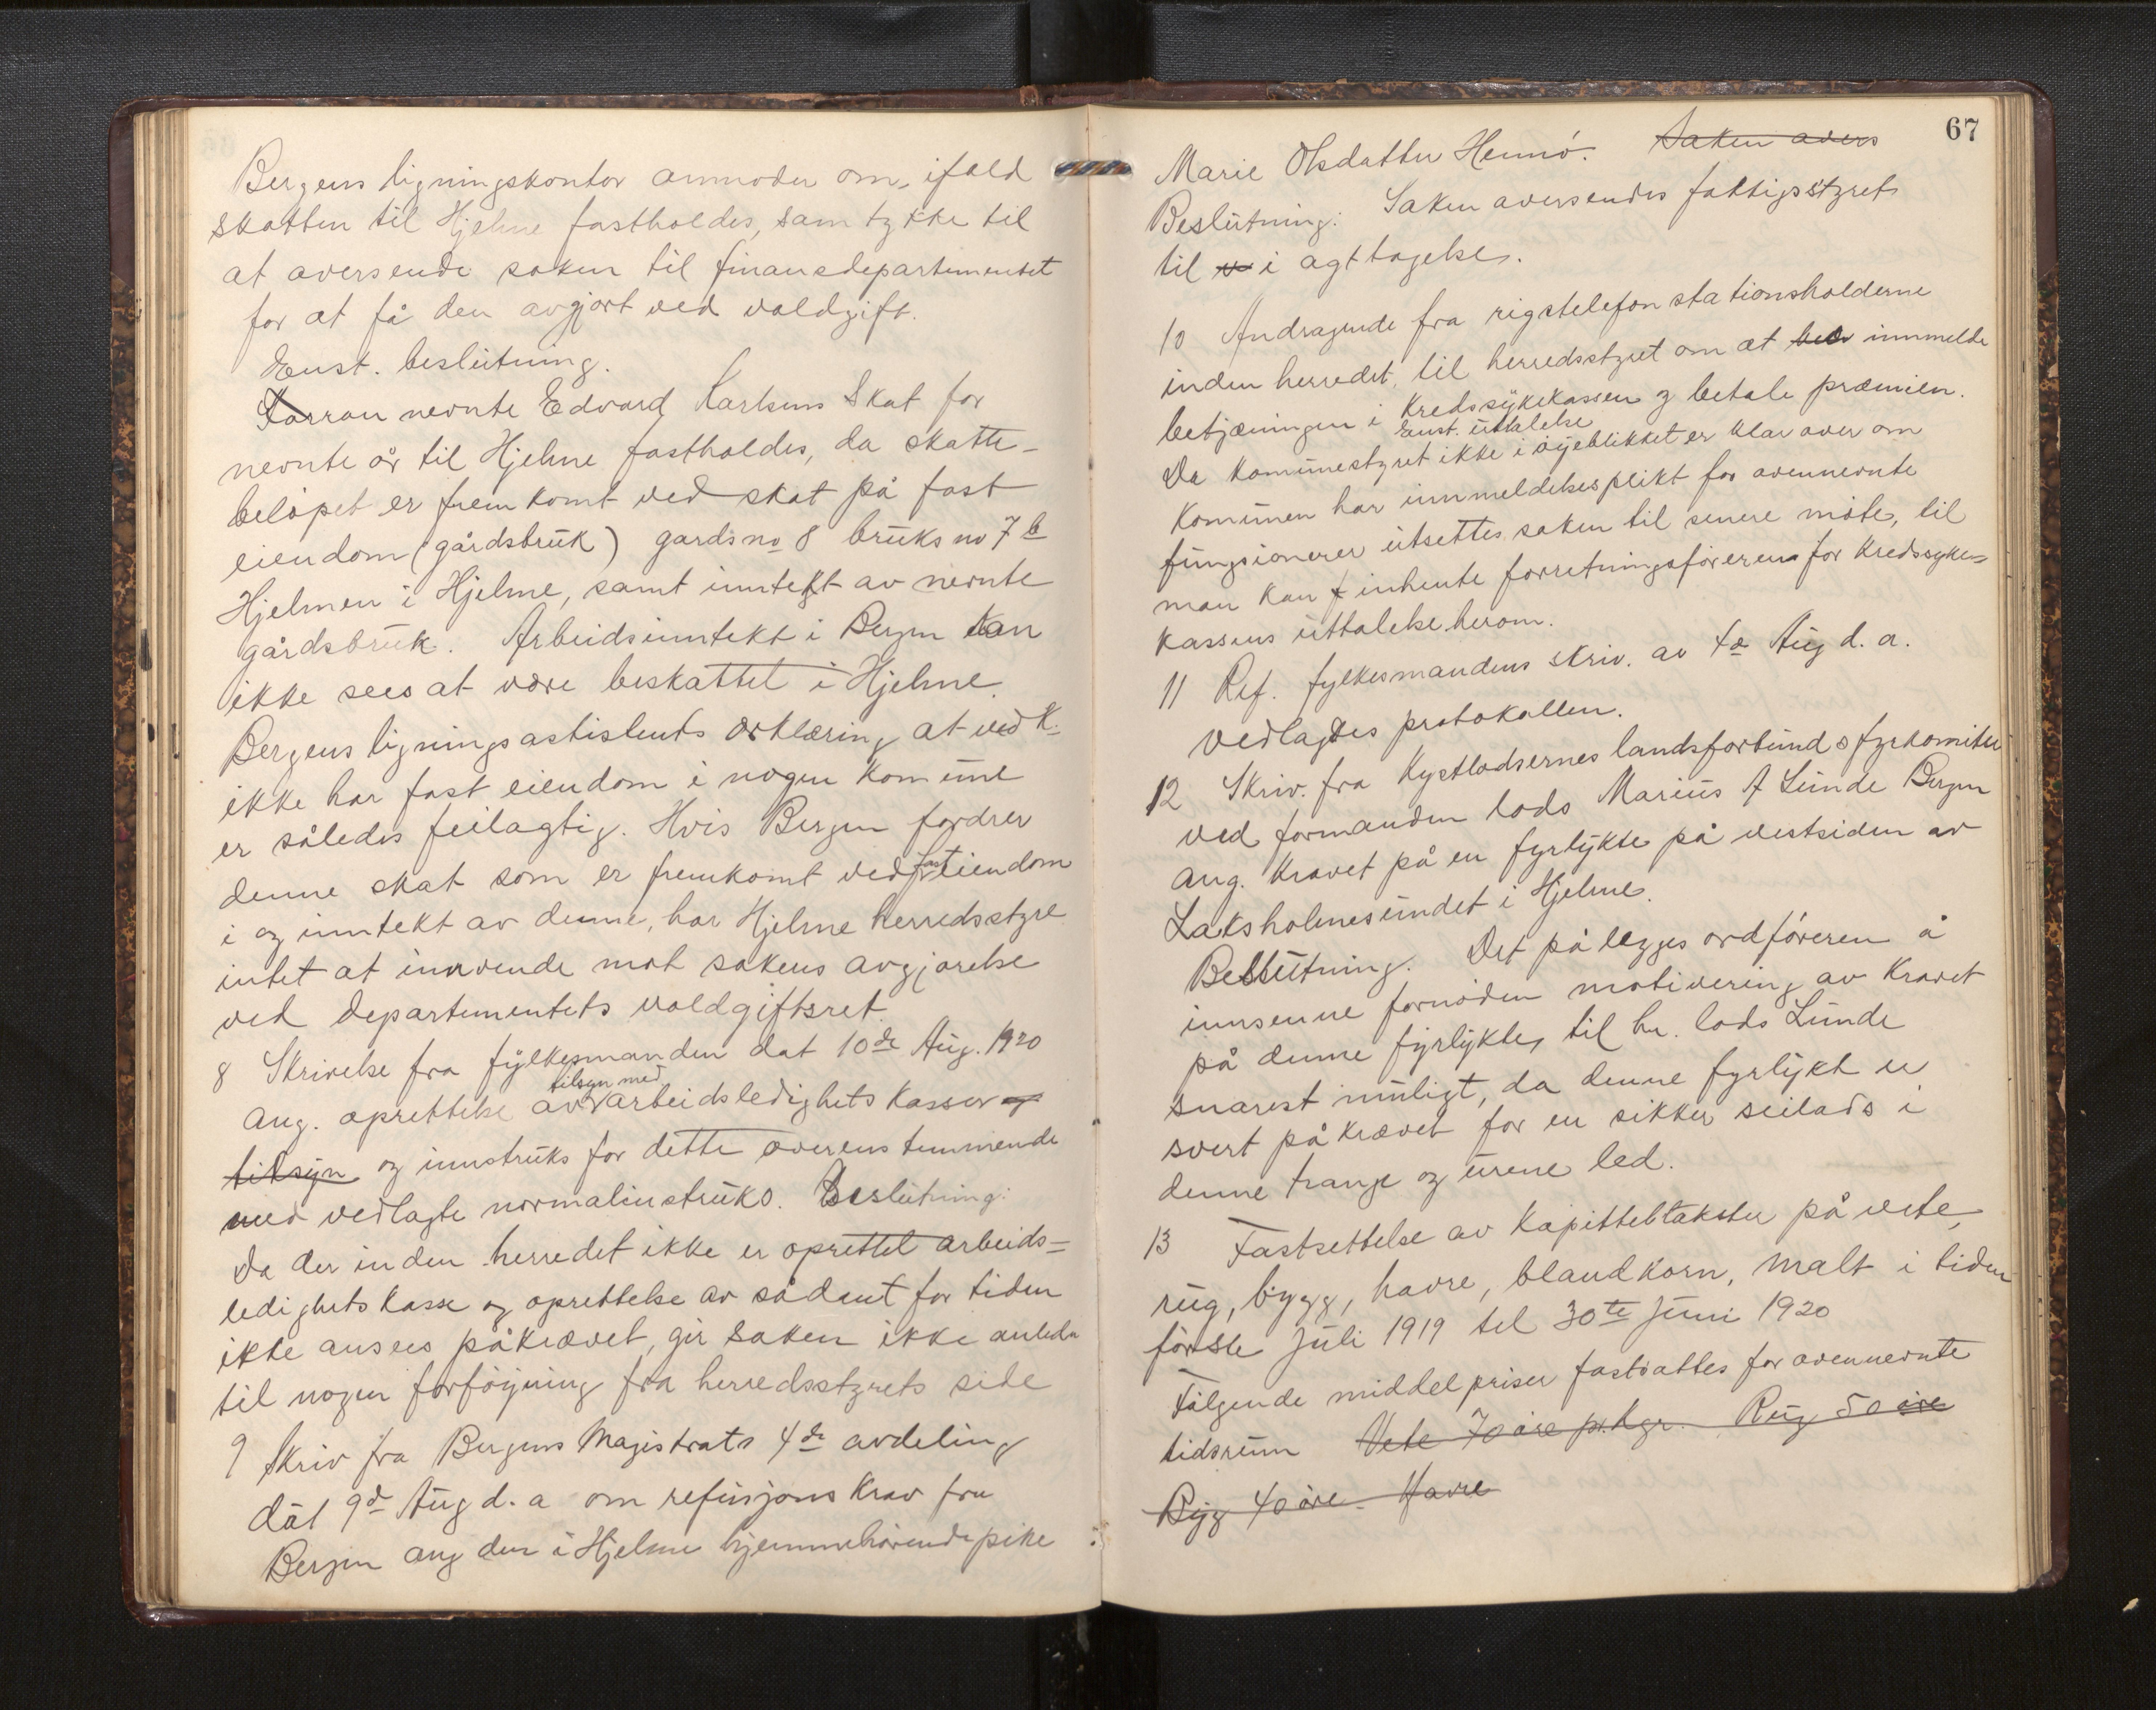 Bergens ligningskontor anmoder om, ifald
skatten til Hjelme fastholdes, samtykke til
at aversende saken til finansdepartementet
for at få den avgjort ved voldgift.
Enst. beslutning.
Forran nevnte Edvard Karlsens Skat for
nevnte år til Hjelme fastholdes, da skatte-
belöpet er fremkomt ved skat på fast
eiendom (gårdsbruk) gardsno 8 bruksno 7 b
Hjelmen i Hjelme, samt inntekt av nevnte
gårdsbruk. Arbeidsinntekt i Bergen kan
ikke sees at være beskattet i Hjelme.
Bergens ligningsastistents ærklæring at ved K.
ikke har fast eiendom i nogen komune
er således feilagtig. Hvis Bergen fordrer
denne skat som er fremkomt ved fast eiendom
i og inntekt av denne, har Hjelme herredsstyre
intet at innvende mot sakens avgjörelse
ved departementets voldgiftsret
8 Skrivelse fra fylkesmanden dat 10de Aug. 1920
ang. oprettelse av tilsyn med arbeidsledighets kasser og
tilsyn og innstruks for dette overenstemmende
med vedlagte normalinstruks. Beslutning:
Da der inden herredet ikke er oprettet arbeids=
ledighetskasse og oprettelse av sådant for tiden
ikke ansees påkrævet, gir saken ikke anledn
til nogen forföyning fra herredsstyrets side
9 Skriv fra Bergens Magistrats 4de avdeling
dat 9d Aug d. a om refusjons krav fra
Bergen ang den i Hjelme hjemmehörende pike
67
Marie Olsdatter Hennö. Saken avers
Beslutning: Saken aversendes fattigsstyret
til i agttagelse.
10 Andragende fra rigstelefonstationsholderne
inden herredet, til herredsstyret om at innmelde
betjæningen i Kredssykekassen og betale præmien.
Enst. uttalelse
Da komunestyret ikke i öyeblikket er klar over om
Komunen har innmeldelsesplikt for ovennevnte
fungsionerer utsettes saken til senere möte, til
man kan inhente forretningsföreren for Kredssyke=
kassens uttalelse herom.
11 Ref. fylkesmandens skriv. av 4de Aug d. a.
Vedlagdes protokollen.
12 Skriv. fra Kystlodsernes landsforbunds fyrkomitee
ved formanden lods Marius A Lunde Bergen
ang. Kravet på en fyrlykte på vestsiden av
Laksholmesundet i Hjelme.
Beslutning. Det pålegges ordföreren å
innsenne fornöden motivering av Kravet
på denne fyrlykte, til hr. lods Lunde
snarest muligt, da denne fyrlykt er
svert påkrævet for en sikker seilads i
denne trange og urene led.
13 Fastsettelse av Kapitteltakster på vete,
rug, bygg, havre, blandkorn, malt i tiden
förste Juli 1919 til 30te Juni 1920
Fölgende middelpriser fastsattes for ovennevnte
tidsrum Vete 70 öre pr. kgr. Rug 50 öre
Byg 40 öre. Havre